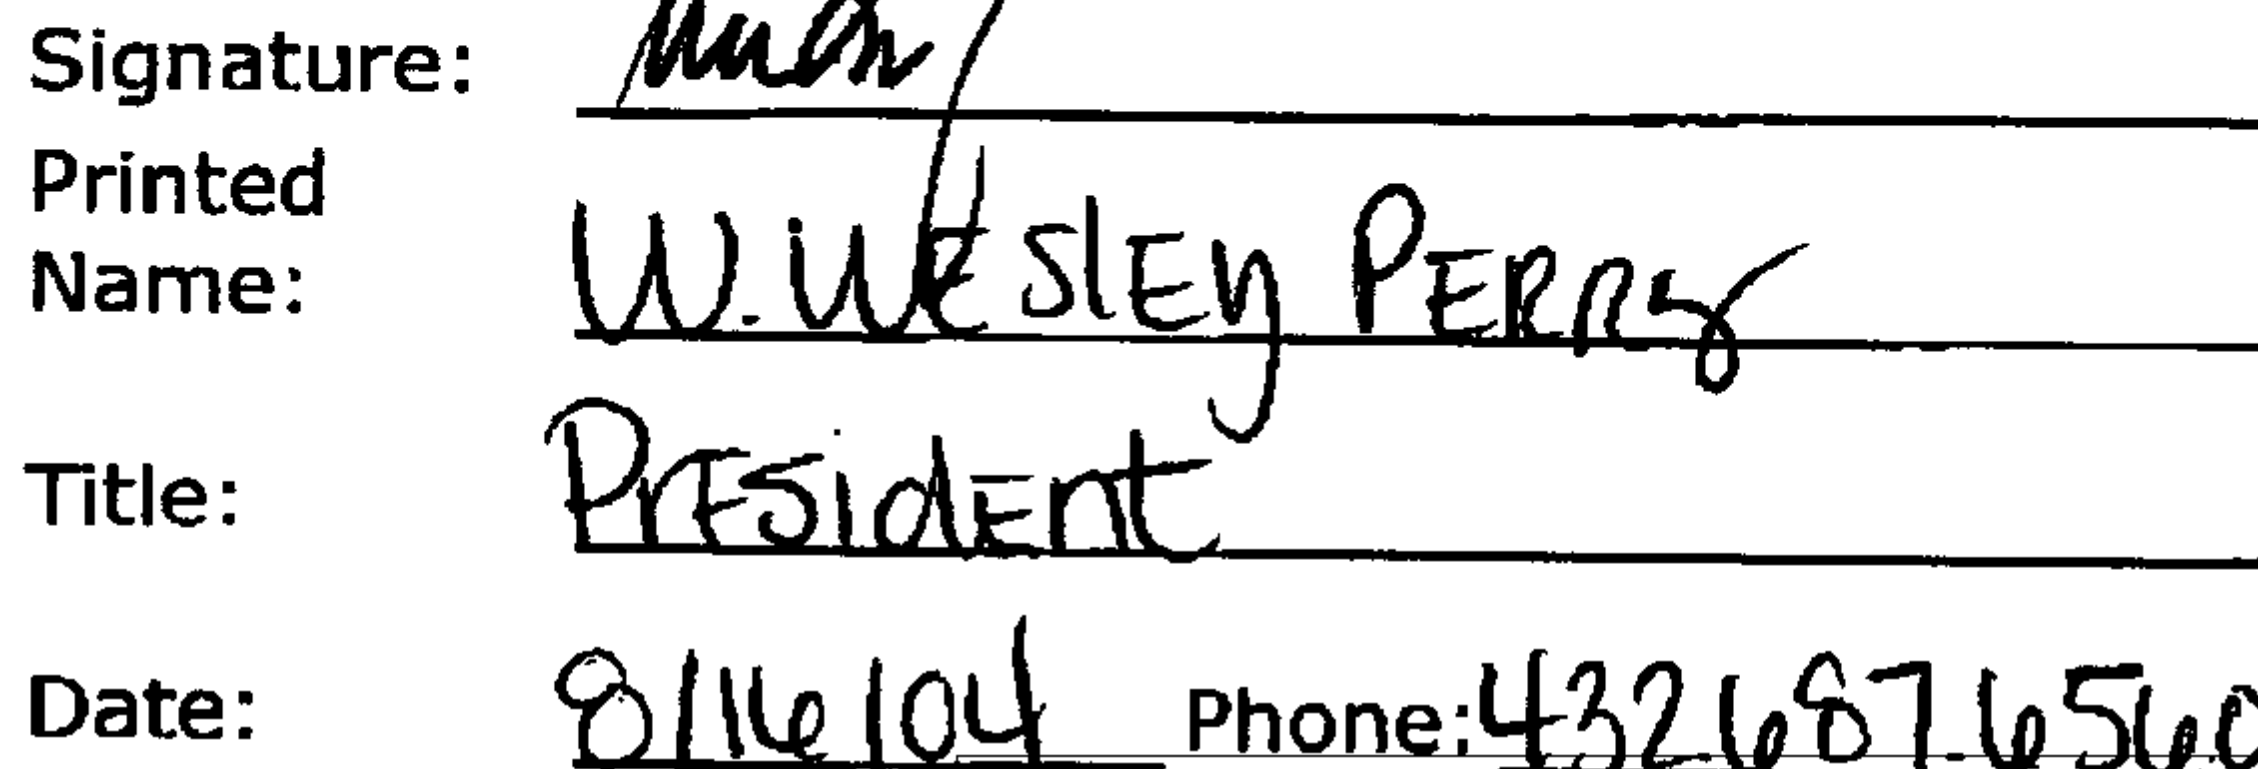 Signature:
Printed
Name: W. Wesley Perry
Title: President
Date: 8/16/04 Phone: 432.687.6560